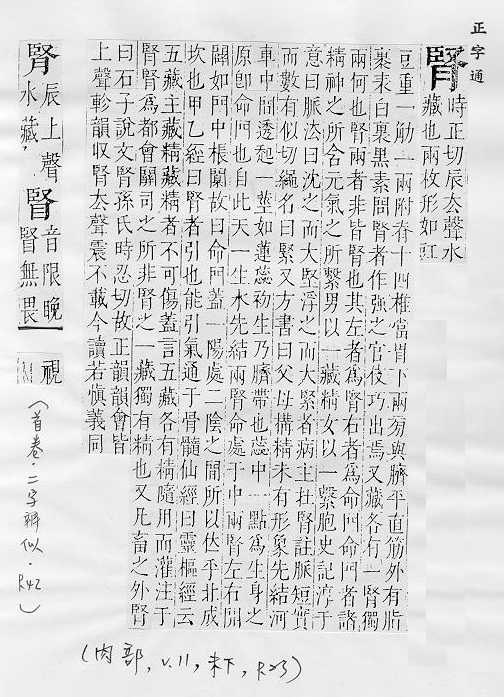 正字通
腎
時正切辰去聲水
藏也兩枚形如豇
豆重一觔一兩附脊十四椎當胃下兩旁與臍平直筋外有脂
裹表白裏黑素問腎者作强之官伎巧出焉又藏各有一腎獨
兩何也腎兩者非皆腎也其左者爲腎右者爲命門命門者諸
精神之所舍元氣之所繫男以一藏精女以一繫胞史記淳于
意曰脈法曰沈之而大堅浮之而大緊者病主在腎註脈短實
而數有似切繩名曰緊又方書曰父母搆精未有形象先結河
車中間透起一莖如蓮蕊初生乃臍帶也蕊中一點爲生身之
原卽命門也自此天一生水先結兩腎命處于中兩腎左右開
闔如門中棖闑故曰命門蓋一陽處二陰之間所以伏乎北成
坎也甲乙經曰腎者引也能引氣通于骨髓仙經曰靈樞經云
五藏主藏精藏精者不可傷蓋言五藏各有精隨用而灌注于
腎腎爲都會關司之所非腎之一藏獨有精也又凡畜之外腎
曰石子說文腎孫氏時忍切故正韻韻會皆
上聲軫韻收腎去聲震不載今讀若愼義同
腎
辰上聲
水藏
音限晚
腎無畏
視
(首卷.二字辨似.R42)
(肉部, v.11, 未下, R23)